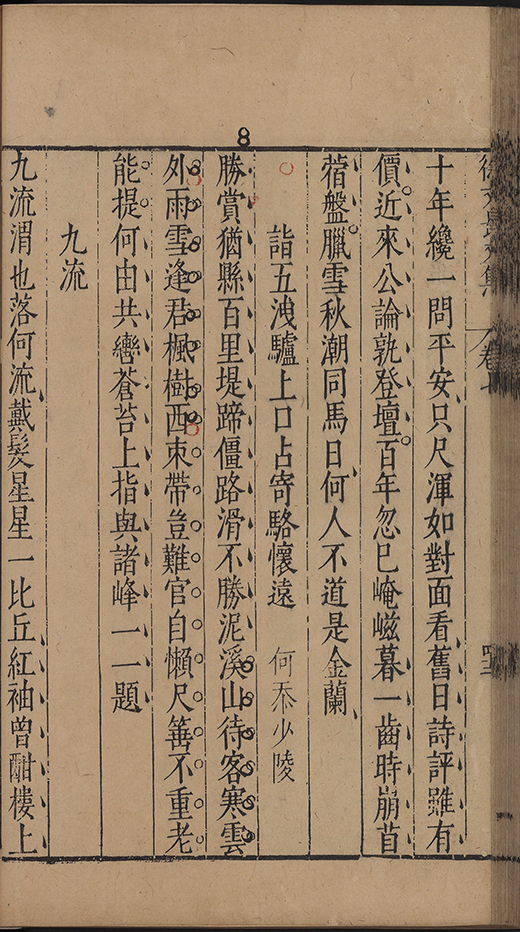 8
十年纔一問平安只尺渾如對面看舊日詩評雖有
價近來公論孰登壇百年忽巳崦嵫暮一齒時崩苜
蓿盤臘雪秋潮同馬日何人不道是金蘭
詣五洩驢上口占寄駱懷遠　何忝少陵
勝賞猶縣百里堤蹄僵路滑不勝泥溪山待客寒雲
外雨雪逢君楓樹西束帶豈難官自懶尺箠不重老
能提何由共轡蒼苔上指與諸峰一一題
九流
九流渭也落何流戴髮星星一比丘紅袖曾酣樓上